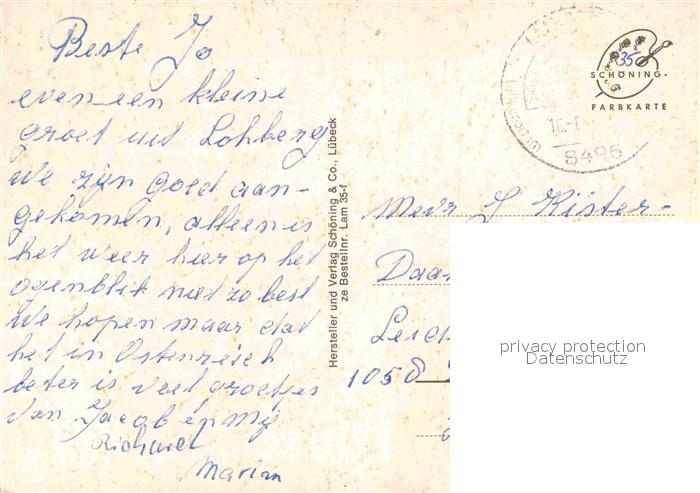 Beste Jo
even een kleine
groet uit Lohberg
We zijn goed aan-
gekomen, alleen is
het weer hier op het
ogenblik niet zo best
We hopen maar dat
het in Ostenreich
beter is veel groetjes
van Jacob en mij
Richard
Marian
Hersteller und Verlag Schöning & Co., Lübeck
ze Bestellnr. Lam 35-f
16.-
8496
35
SCHÖNING-
FARBKARTE
Mevr
Daa
Leid
1058
privacy protection
Datenschutz